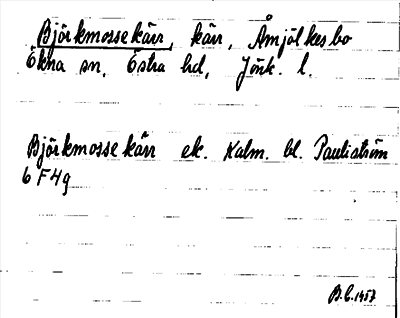 Björkmosse kärr, kärr, Åmjölkesbo
Ökna sn, Östra hd, Jönk. l.
Björkmosse kärr ek. Kalm. bl. Pauliström
6 F 4 g
B.C. 1957